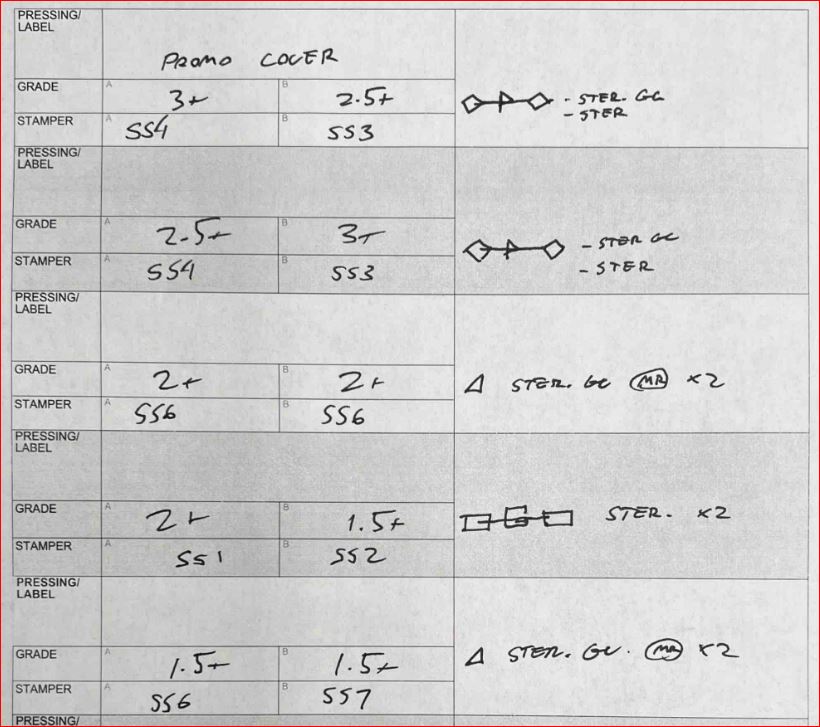 PRESSING/
LABEL
PROMO COVER
GRADE A 3+ B 2.5+
- STER. GC
- STER
STAMPER A SS4 B SS3
PRESSING/
LABEL
GRADE A 2.5+ B 3+
- STER GC
- STER
STAMPER A SS4 B SS3
PRESSING/
LABEL
GRADE A 2+ B 2+
STER. GC MR X2
STAMPER A SS6 B SS6
PRESSING/
LABEL
GRADE A 2+ B 1.5+
STER. X2
STAMPER A SS1 B SS2
PRESSING/
LABEL
GRADE A 1.5+ B 1.5+
STER. GC. MR X2
STAMPER A SS6 B SS7
PRESSING/